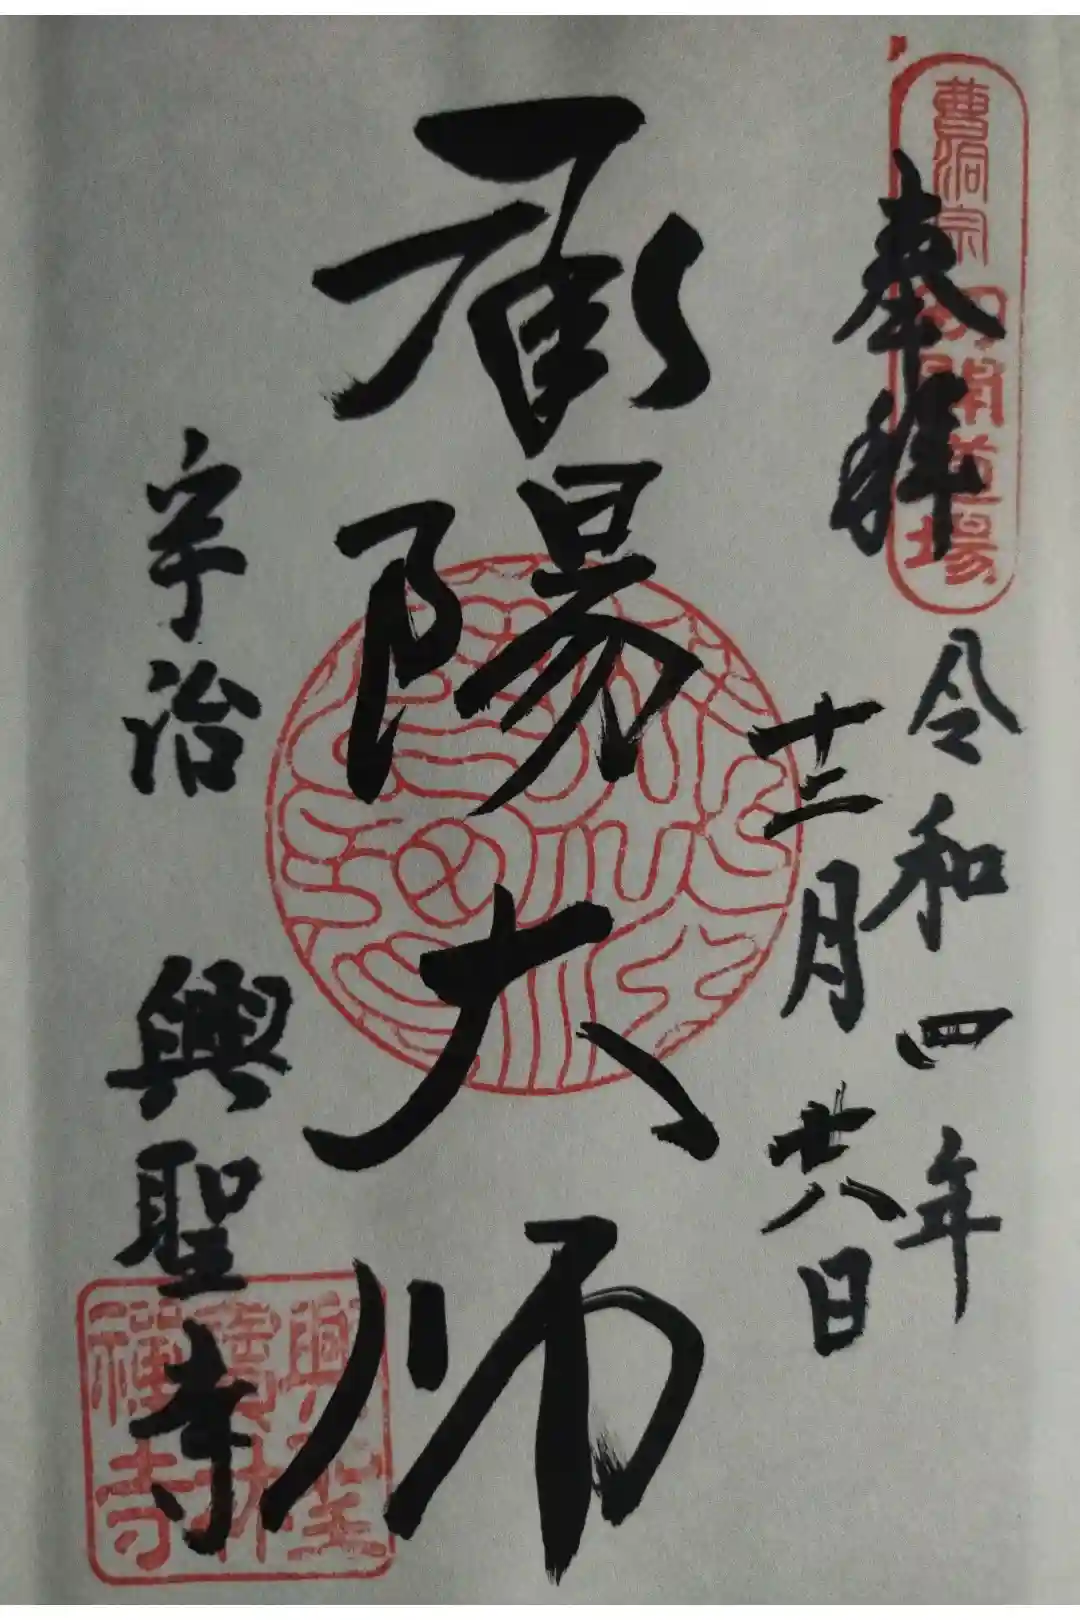 曹洞宗
初開道場
奉拝
令和四年
十二月廿八日
承陽大師
宇治 興聖寺
興聖
寶林
禅寺